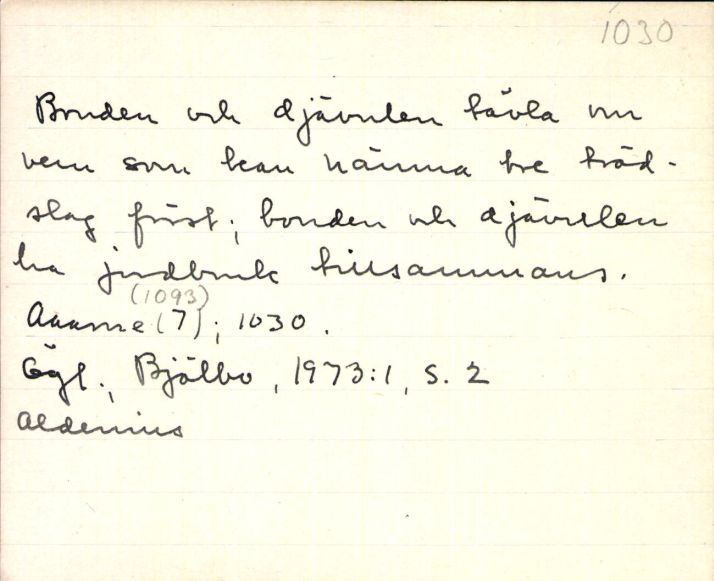 1030
Bonden och djävulen tävla om
vem som kan nämna tre träd-
slag först; bonden och djävulen
ha jordbruk tillsammans.
(1093)
Aarne (7); 1030.
Ögl., Bjälbo, 1973:1, S. 2
Aldenius